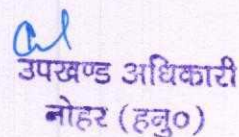 उपखण्ड अधिकारी
नोहर (हनु०)